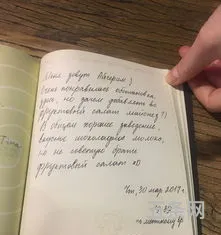 Меня зовут Айгерим)
Очень понравилась обстановка,
но зачем добавлять во
фруктовый салат майонез?)
В общем хорошее заведение,
вкусное шоколадное молоко,
но не советую брать
фруктовый салат xD
Чт, 30 мар 2017г.
Tina